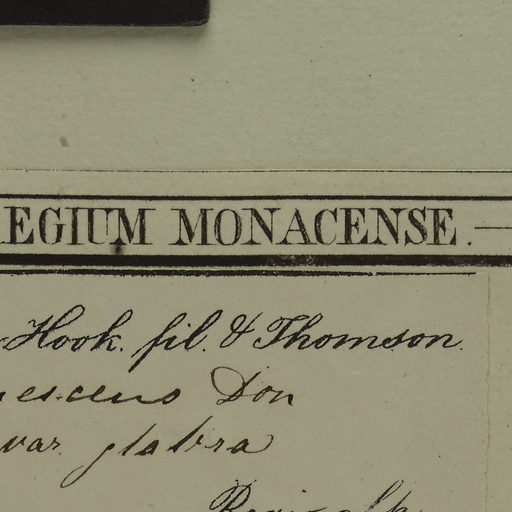 EGIUM MONACENSE.
Hook. fil. & Thomson.
escens Don
var. glabra